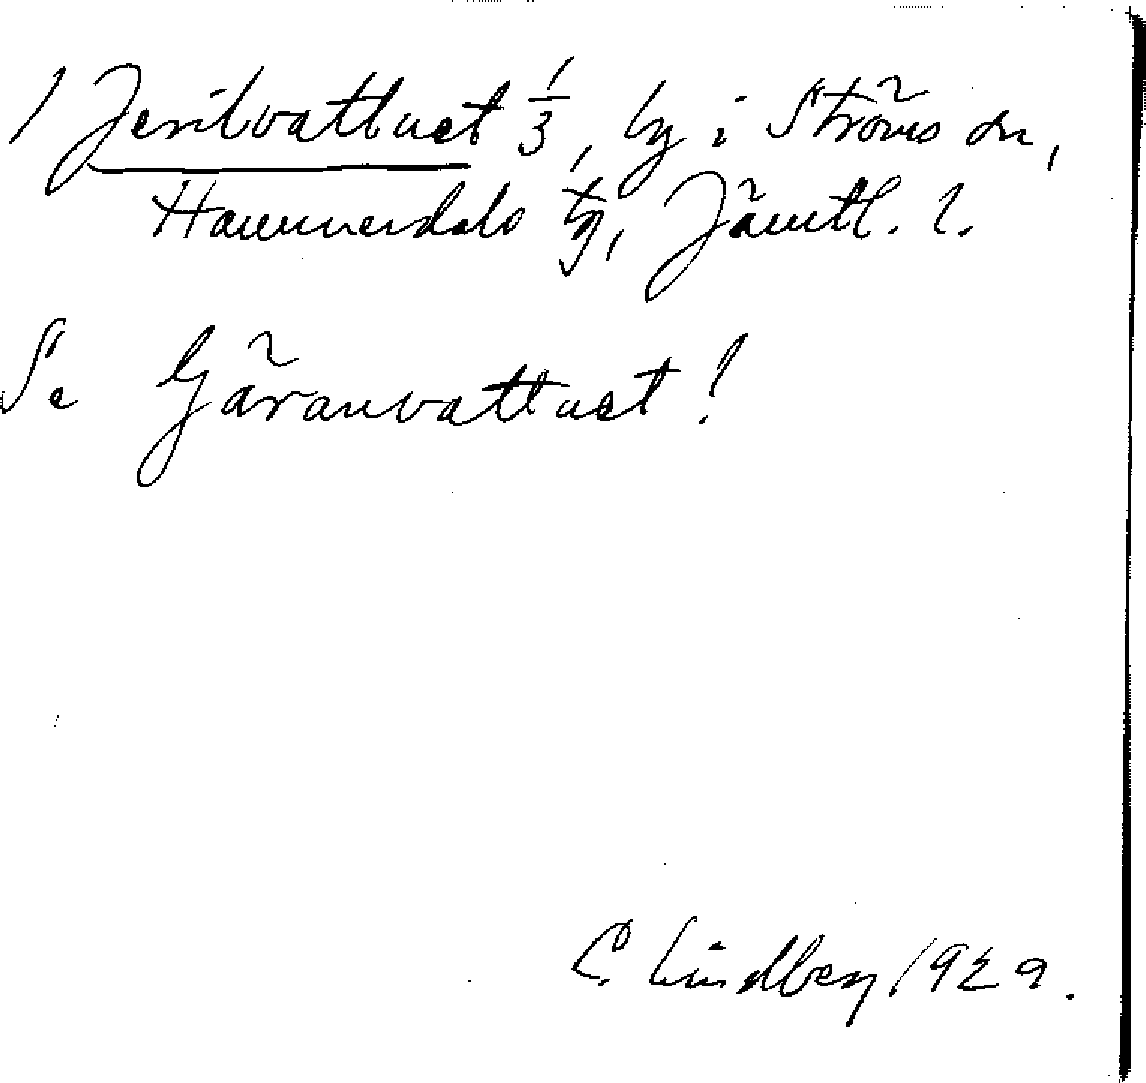 1 Jerilvattnet 1/3, by i Ströms sn,
Hammerdals tg, Jämtl. l.
Se Gäranvattnet!
C. Lindberg 1929.